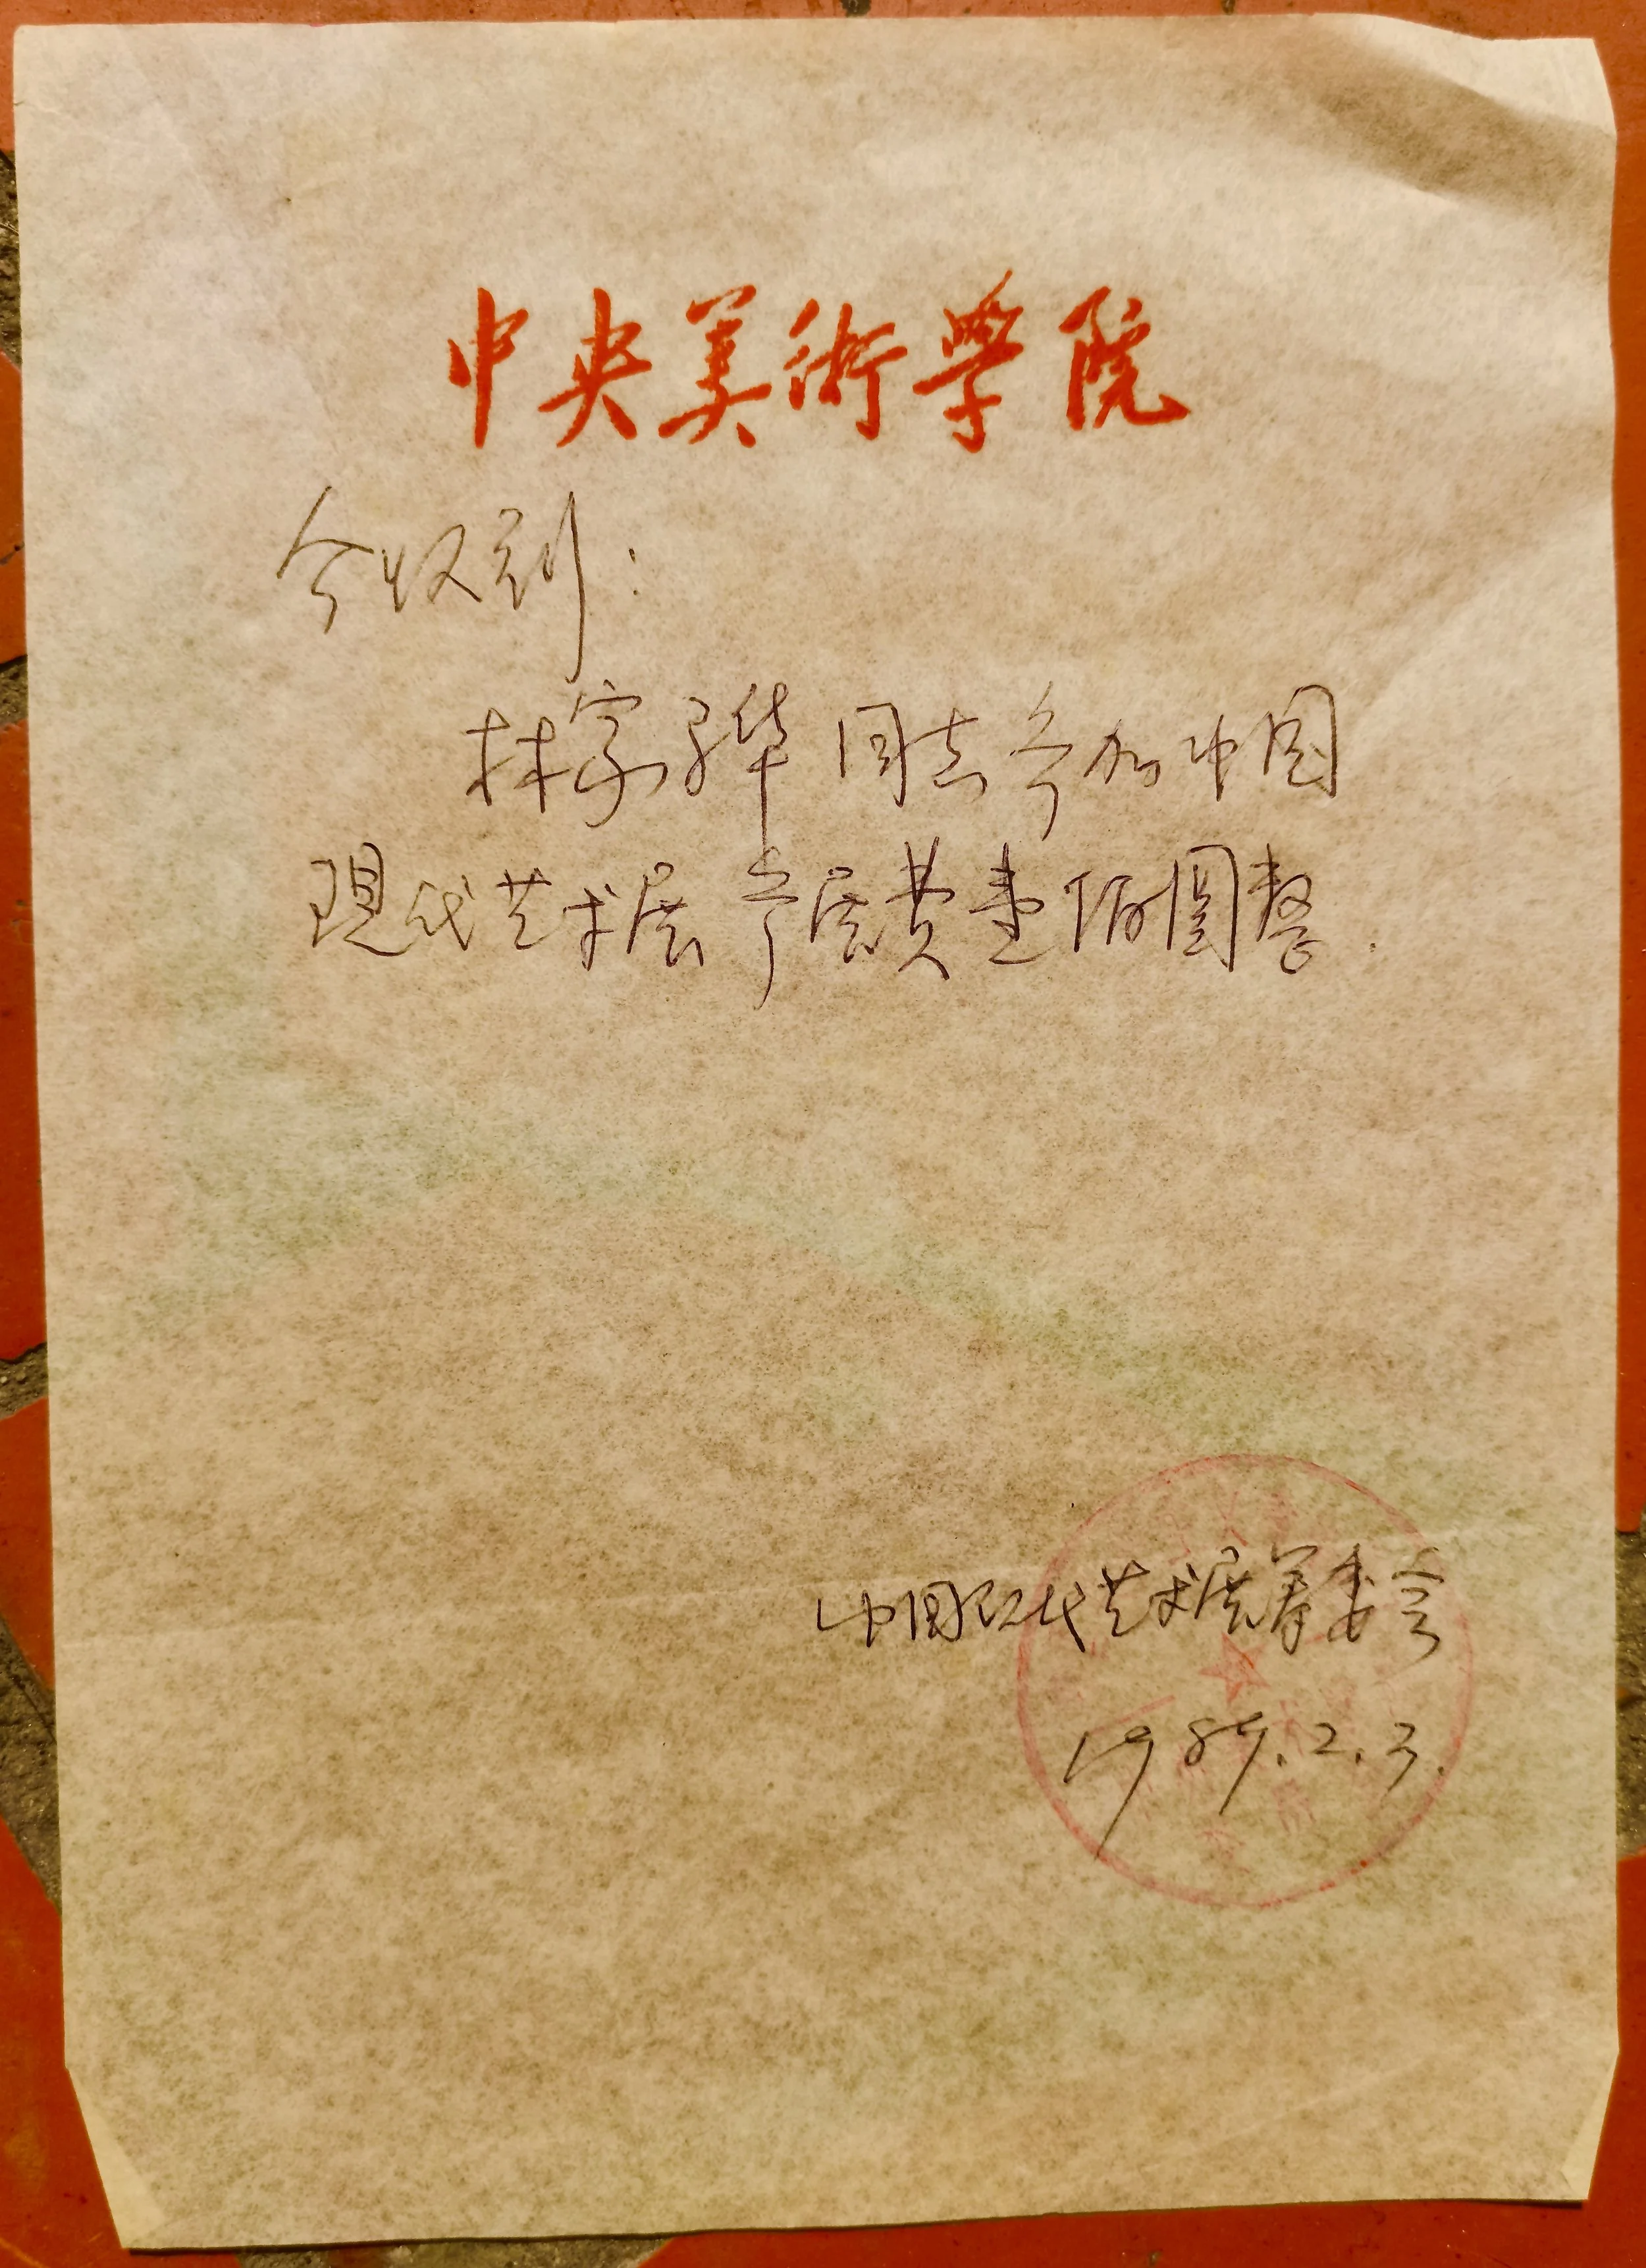 中央美術學院
今收到:
林家华同志参加中国
现代艺术展参展费壹佰圆整.
中国现代艺术展筹委会
1989.2.3.